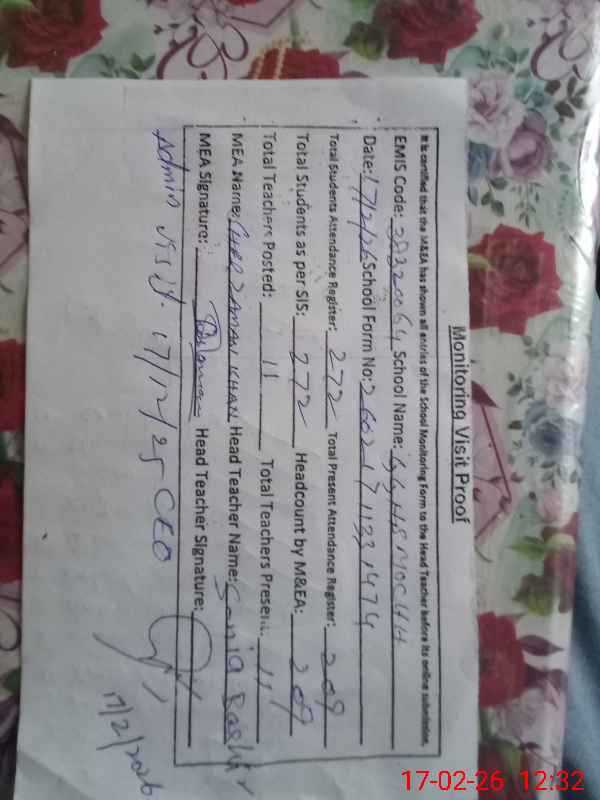 Monitoring Visit Proof
It is certified that the M&EA has shown all entries of the School Monitoring Form to the Head Teacher before its online submission.
EMIS Code: 38320064 School Name: GGHS MOCHH
Date: 17/2/26 School Form No: 2602171331474
Total Students Attendance Register: 272 Total Present Attendance Register: 209
Total Students as per SIS: 272 Headcount by M&EA: 209
Total Teachers Posted: 11 Total Teachers Present: 11
MEA Name: KHAN Head Teacher Name: Sonia Bashir
MEA Signature: Head Teacher Signature:
Admin visit. 17/12/25 CEO
17/2/2026
17-02-26 12:32